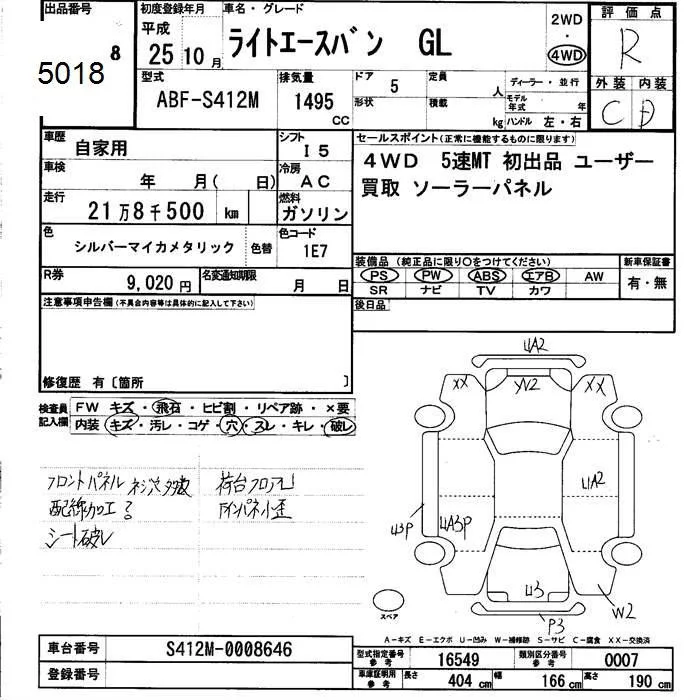 出品番号
8
5018
初度登録年月
平成
25 10 月
車名・グレード
ライトエースバン GL
2WD
・
4WD
評価点
R
外装 内装
C D
型式
ABF-S412M
排気量
1495
CC
ドア 5
形状
定員 人
積載 kg
ディーラー・並行
モデル年式 年
ハンドル 左・右
車歴 自家用
シフト I5
車検 年 月( 日)
冷房 AC
走行 21万8千500 km
燃料 ガソリン
色 シルバーマイカメタリック 色替
色コード 1E7
R券 9,020 円
名変通知期限 月 日
セールスポイント(正常に機能するものに限ります)
4WD 5速MT 初出品 ユーザー
買取 ソーラーパネル
装備品 (純正品に限り○をつけてください)
PS PW ABS エアB AW
SR ナビ TV カワ
新車保証書
有・無
後日品
注意事項申告欄(不具合内容等は具体的に記入して下さい)
修復歴 有〔箇所 〕
検査員記入欄
FW キズ・飛石・ヒビ割・リペア跡・×要
内装 キズ・汚レ・コゲ・穴・スレ・キレ・破レ
フロントパネル ネジ穴多数
配線加工?
シート破レ
荷台フロアU
インパネ小歪
UA2
XX
YV2
XX
UA2
U3P
UA3P
U3
W2
P3
スペア
A-キズ E-エクボ U-凹み W-補修跡 S-サビ C-腐食 XX-交換済
車台番号 S412M-0008646
登録番号
型式指定番号 参考 16549
類別区分番号 参考 0007
車庫証明用 参考
長さ 404 cm
幅 166 cm
高さ 190 cm